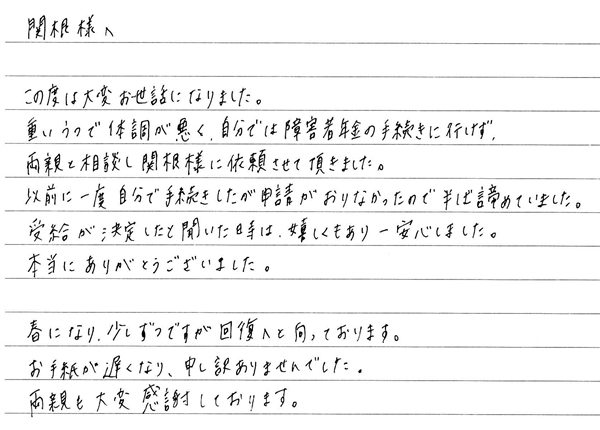 関根様へ
この度は大変お世話になりました。
重いうつで体調が悪く、自分では障害者年金の手続きに行けず、
両親と相談し関根様に依頼させて頂きました。
以前に一度自分で手続きしたが申請がおりなかったので半ば諦めていました。
受給が決定したと聞いた時は、嬉しくもあり一安心しました。
本当にありがとうございました。
春になり、少しずつですが回復へと向っております。
お手紙が遅くなり、申し訳ありませんでした。
両親も大変感謝しております。